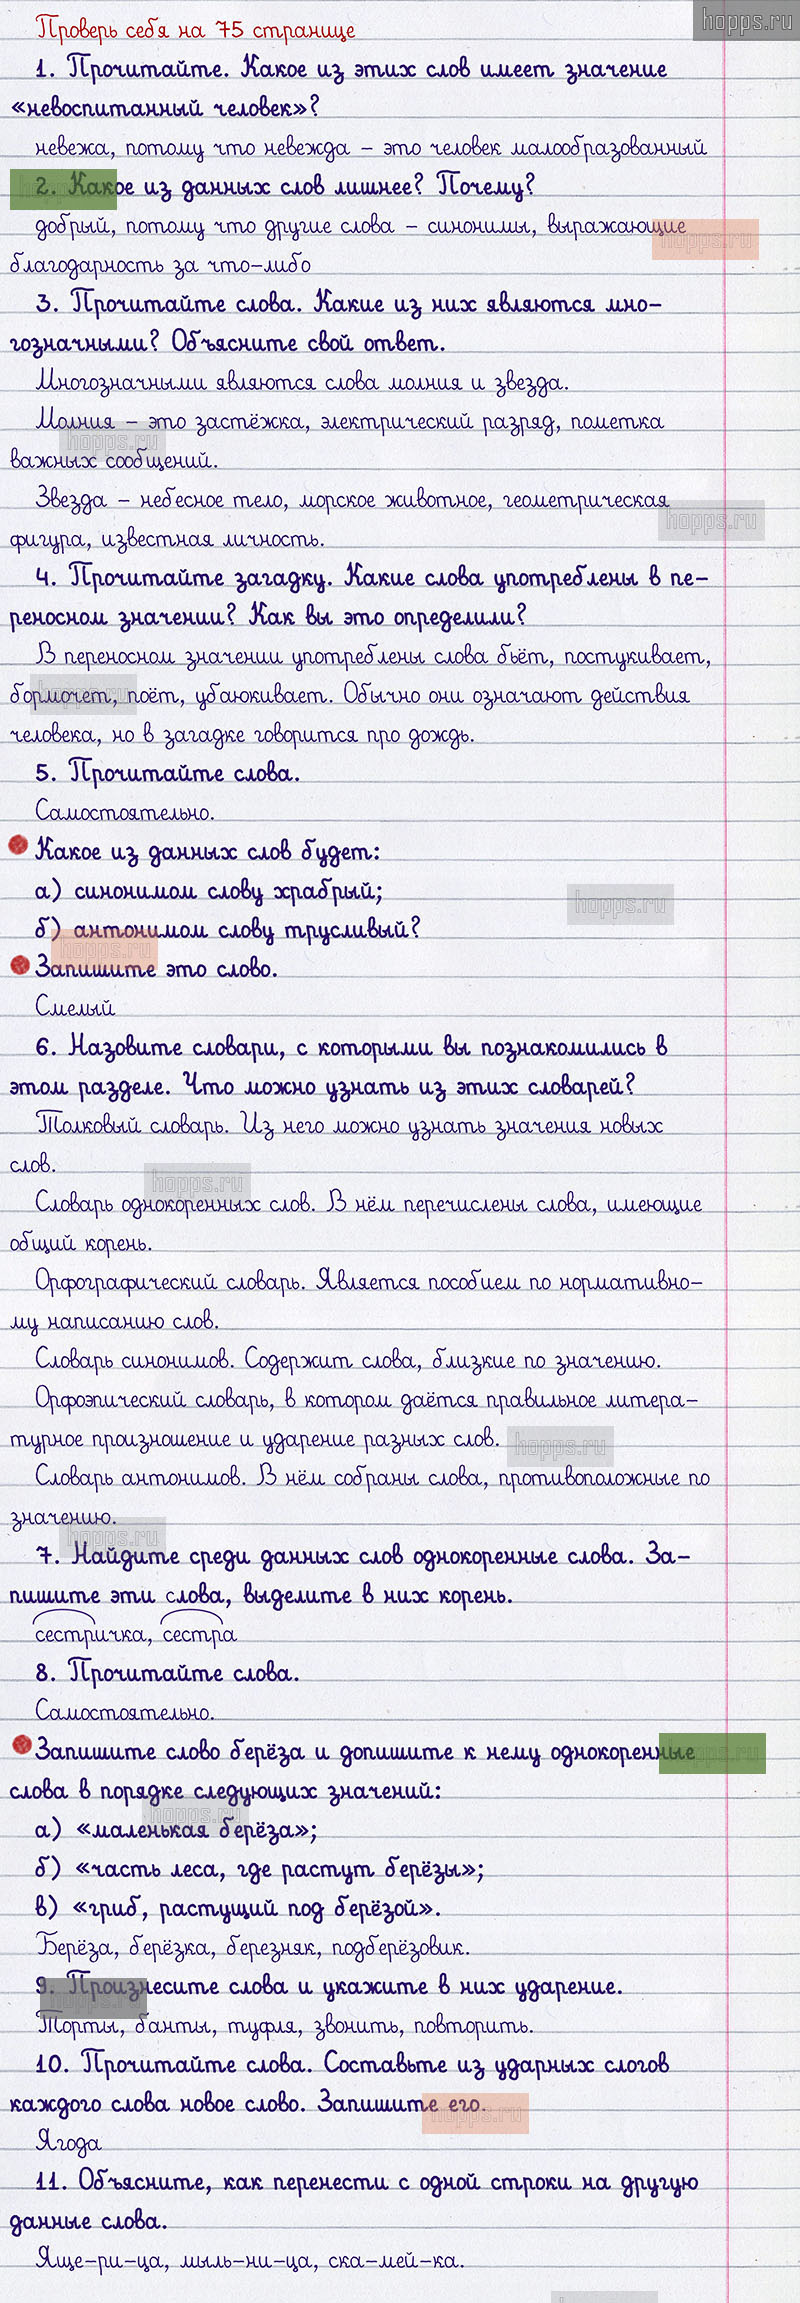 hopps.ru
Проверь себя на 75 странице
1. Прочитайте. Какое из этих слов имеет значение
«невоспитанный человек»?
невежа, потому что невежда – это человек малообразованный
2. Какое из данных слов лишнее? Почему?
добрый, потому что другие слова – синонимы, выражающие
hopps.ru
благодарность за что-либо
3. Прочитайте слова. Какие из них являются мно-
гозначными? Объясните свой ответ.
Многозначными являются слова молния и звезда.
Молния – это застёжка, электрический разряд, пометка
hopps.ru
важных сообщений.
Звезда – небесное тело, морское животное, геометрическая
hopps.ru
фигура, известная личность.
4. Прочитайте загадку. Какие слова употреблены в пе-
реносном значении? Как вы это определили?
В переносном значении употреблены слова бьёт, постукивает,
бормочет, поёт, убаюкивает. Обычно они означают действия
человека, но в загадке говорится про дождь.
5. Прочитайте слова.
Самостоятельно.
Какое из данных слов будет:
а) синонимом слову храбрый;
hopps.ru
б) антонимом слову трусливый?
hopps.ru
Запишите это слово.
Смелый
6. Назовите словари, с которыми вы познакомились в
этом разделе. Что можно узнать из этих словарей?
Толковый словарь. Из него можно узнать значения новых
слов.
hopps.ru
Словарь однокоренных слов. В нём перечислены слова, имеющие
общий корень.
Орфографический словарь. Является пособием по нормативно-
му написанию слов.
Словарь синонимов. Содержит слова, близкие по значению.
Орфоэпический словарь, в котором даётся правильное литера-
турное произношение и ударение разных слов.
hopps.ru
Словарь антонимов. В нём собраны слова, противоположные по
значению.
hopps.ru
7. Найдите среди данных слов однокоренные слова. За-
пишите эти слова, выделите в них корень.
сестричка, сестра
8. Прочитайте слова.
Самостоятельно.
Запишите слово берёза и допишите к нему однокоренные
слова в порядке следующих значений:
hopps.ru
а) «маленькая берёза»;
б) «часть леса, где растут берёзы»;
в) «гриб, растущий под берёзой».
Берёза, берёзка, березняк, подберёзовик.
9. Произнесите слова и укажите в них ударение.
Торты, банты, туфля, звонить, повторить.
10. Прочитайте слова. Составьте из ударных слогов
каждого слова новое слово. Запишите его.
hopps.ru
Ягода
11. Объясните, как перенести с одной строки на другую
данные слова.
Яще-ри-ца, мыль-ни-ца, ска-мей-ка.